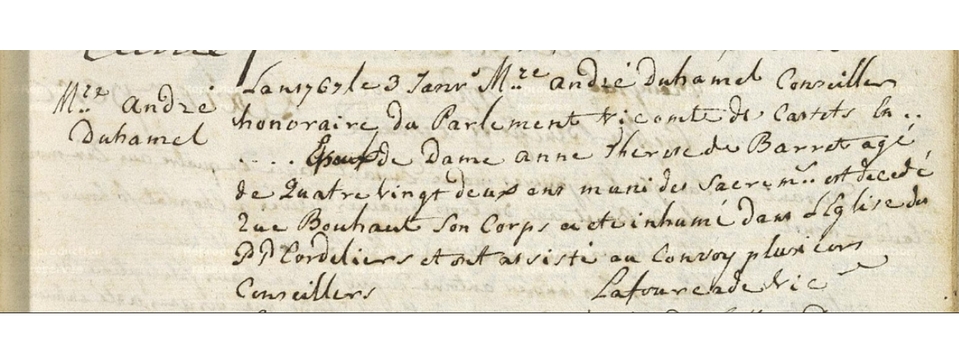 Mre André
Duhamel
L'an 1767 le 3 Janvr Mre andré Duhamel Conseiller
honoraire du Parlement vicomte de Castets En ..
.... Epoux de Dame anne Therese de Barret agé
de Quatre vingt deux ans muni des Sacrems est decedé
Rue Bouhaut Son Corps a eté inhumé dans L'Eglise des
PP Cordeliers et ont assisté au Convoy plusieurs
Conseillers
Lafourcade Vic